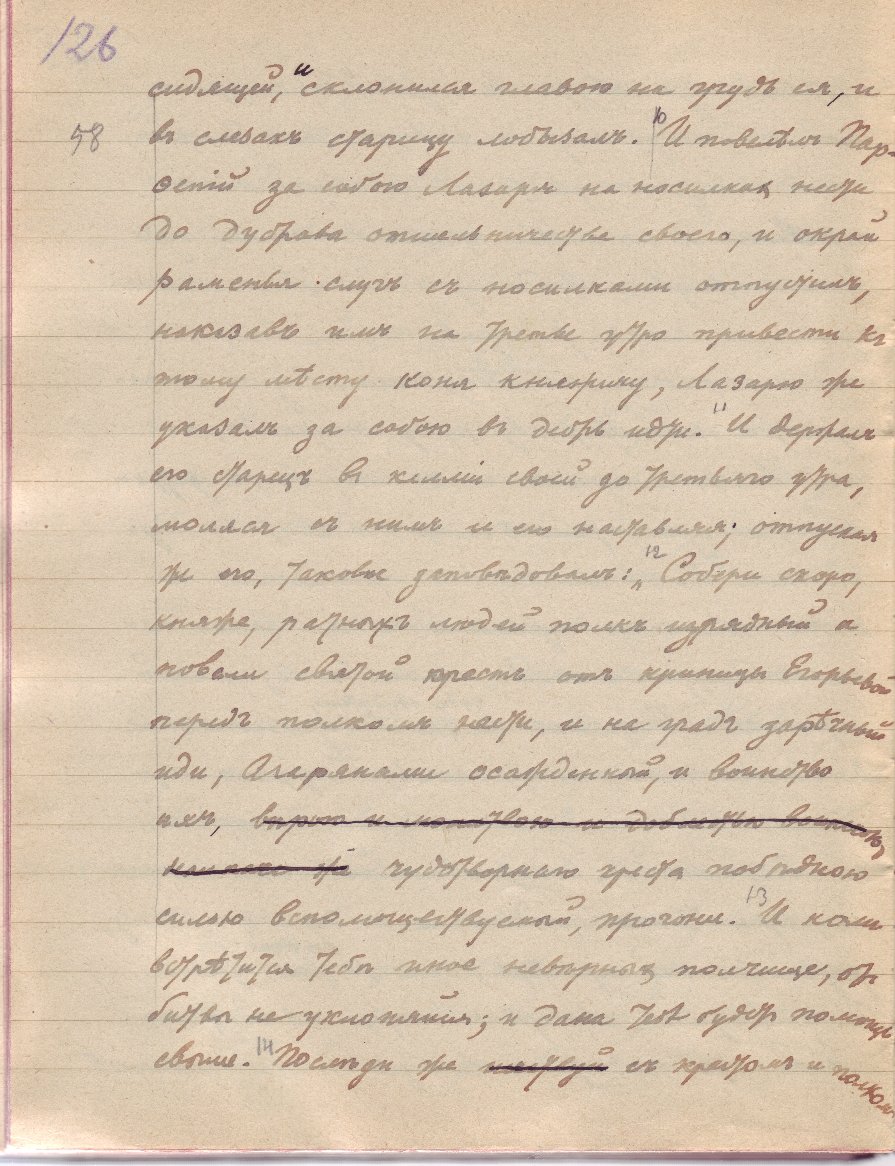 126
сидящей, и склонился главою на грудь ея, и
58
въ слезахъ старицу лобызалъ. 10 И повелѣлъ Пар-
ѳеній за собою Лазаря на носилкахъ нести
до дуброва отшельничества своего, и окрай
раменья слугъ съ носилками отпустилъ,
наказавъ имъ на третье утро привести къ
тому мѣсту коня княжичу, Лазарю же
указалъ за собою въ дебрь идти. 11 И держалъ
его старецъ въ келліи своей до третьяго утра,
моляся съ нимъ и его наставляя; отпуская
же его, таковое заповѣдовалъ: 12 „Собери скоро,
княже, ратныхъ людей полкъ изрядный и
повели святой крестъ отъ криницы Егорьевой
передъ полкомъ нести, и на градъ зарѣчный
иди, Агарянами осажденный, и воинство
ихъ, вѣрою и молитвою и доблестью воинскою,
наипаче же чудотворнаго креста побѣдною
силою вспомоществуемый, прогони. 13 И коли
встрѣтится тебѣ иное невѣрныхъ полчище, отъ
битвы не уклоняйся; и дана тебѣ будетъ помощь
свыше. 14 Послѣди же шествуй съ крестомъ и полкомъ